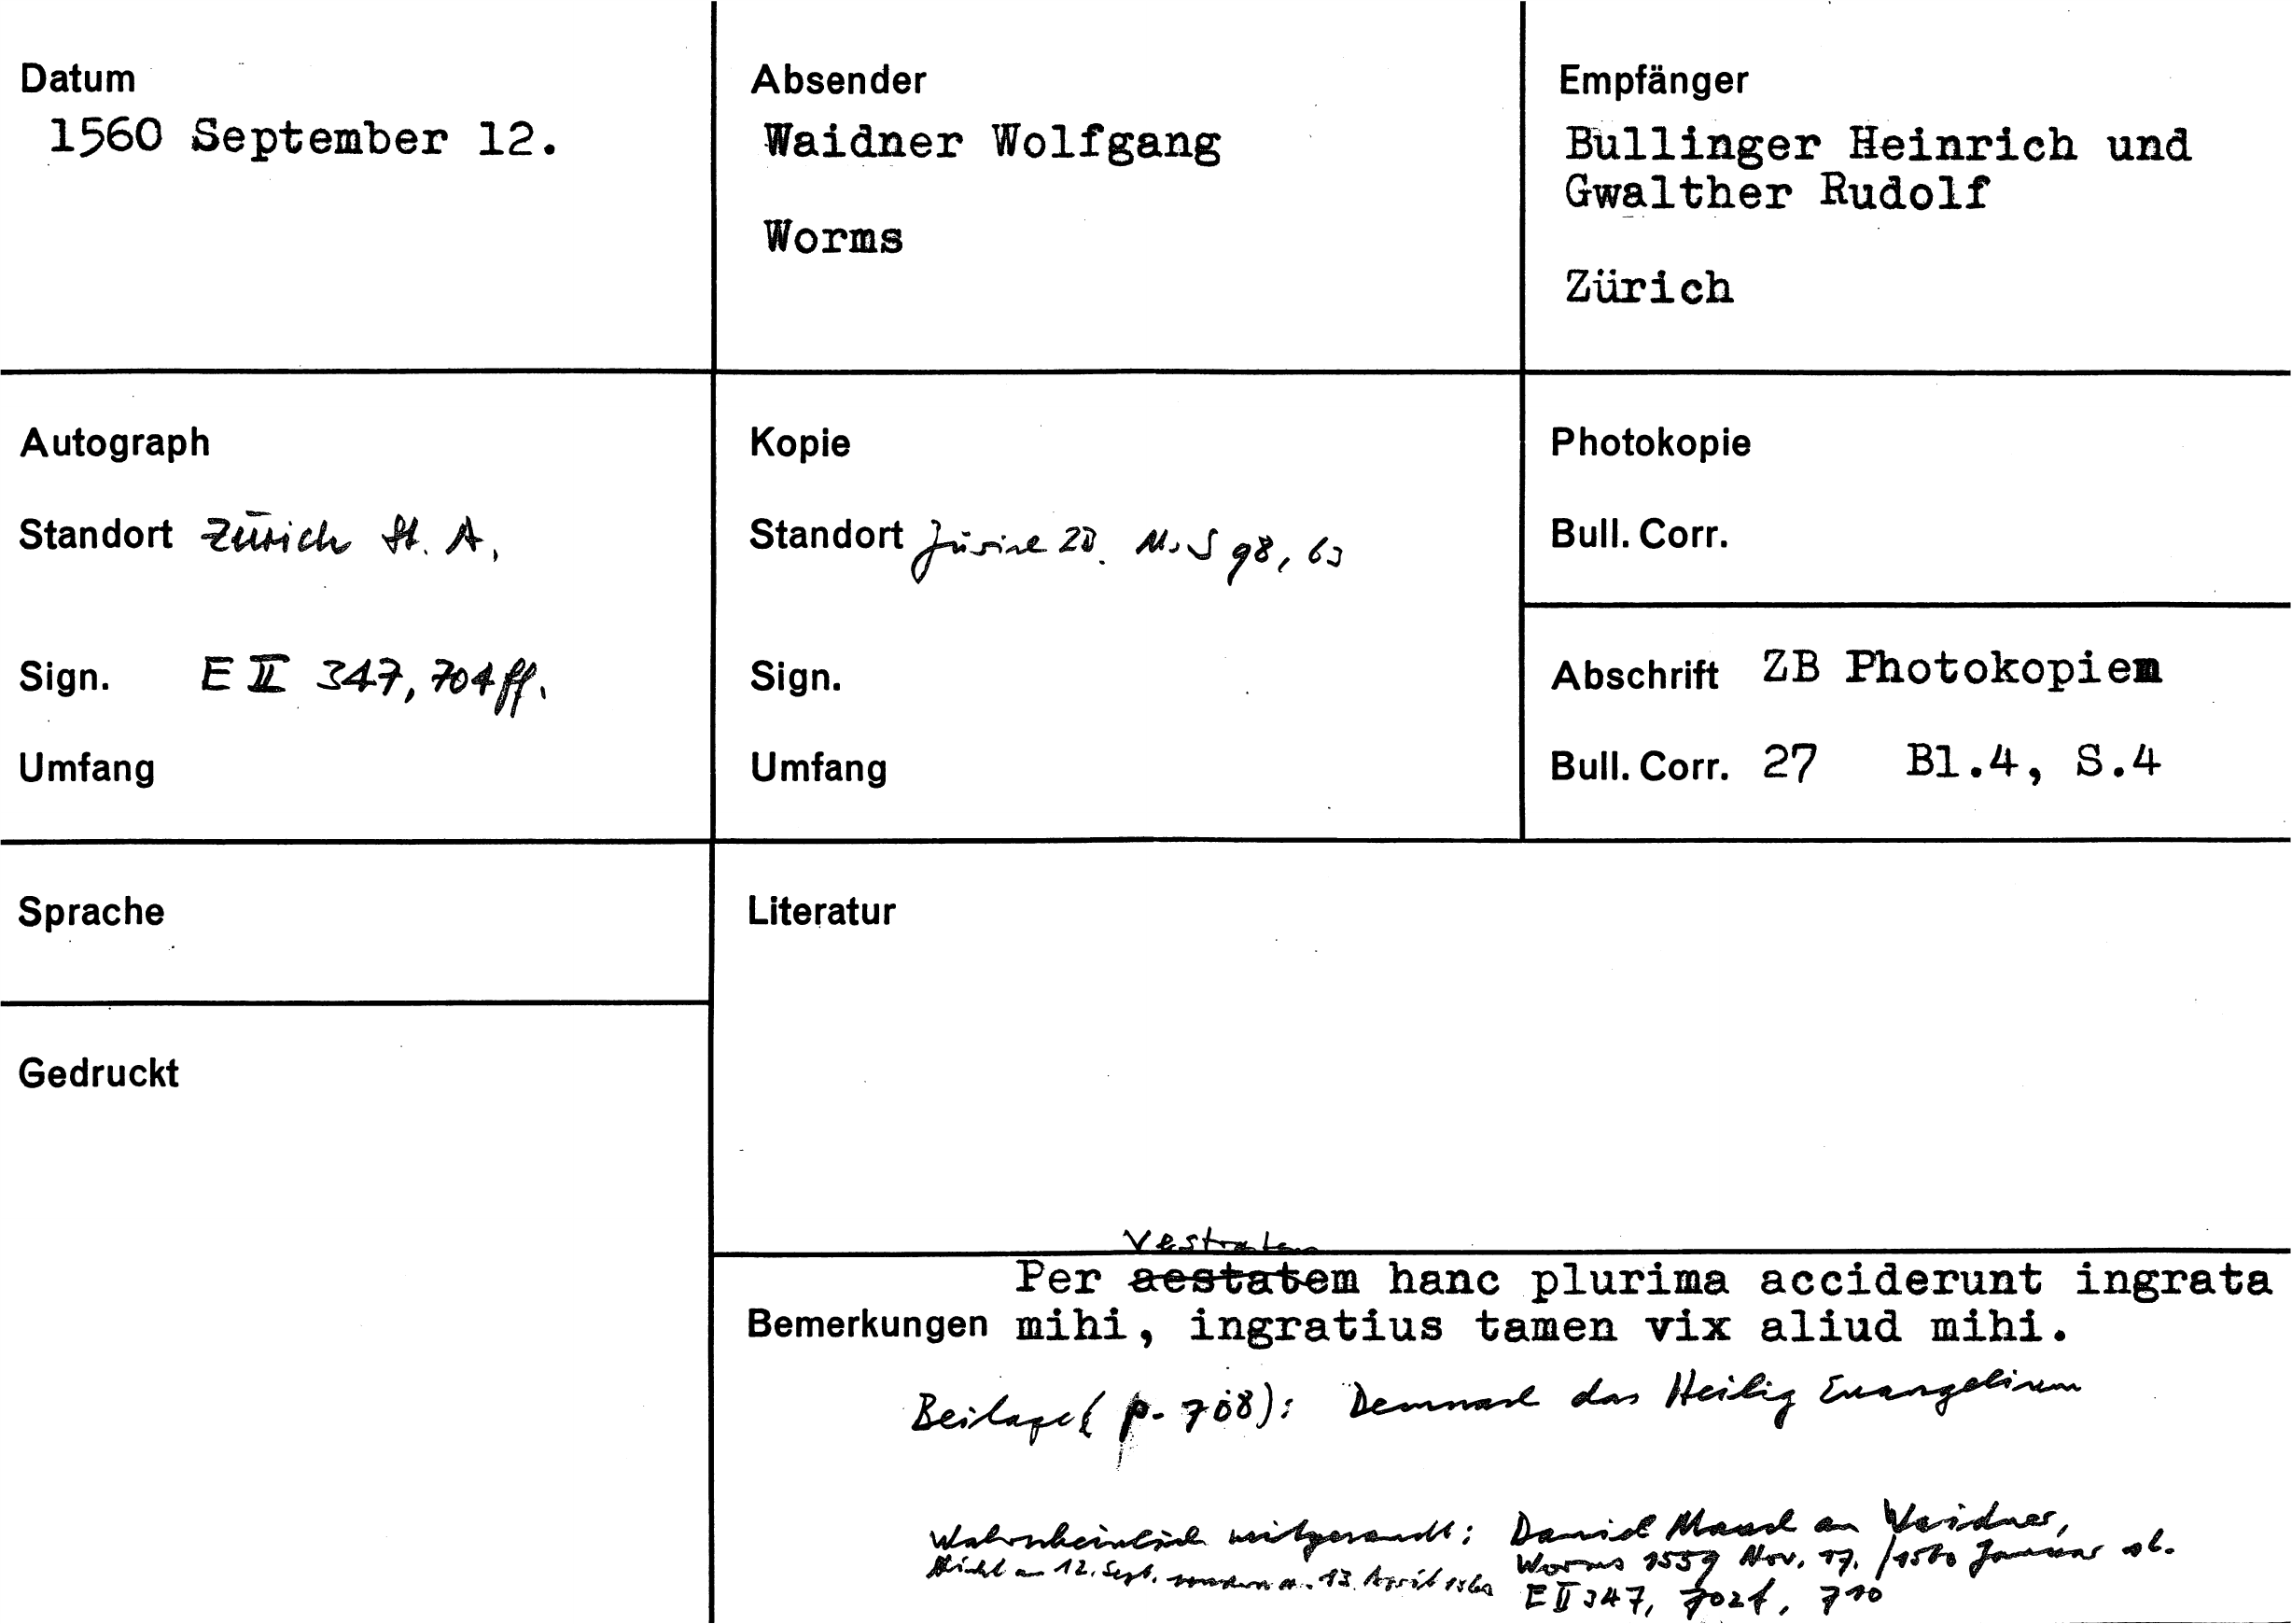 Datum
1560 September 12.
Absender
Waidner Wolfgang
Worms
Empfänger
Bullinger Heinrich und
Gwalther Rudolf
Zürich
Autograph
Standort Zürich St. A,
Sign. E II 347, 704ff.
Umfang
Kopie
Standort Zürich ZB. Ms S 98, 63
Sign.
Umfang
Photokopie
Bull. Corr.
Abschrift ZB Photokopien
Bull. Corr. 27 Bl.4, S.4
Sprache
Gedruckt
Literatur
Per aestatem hanc plurima acciderunt ingrata
Bemerkungen mihi, ingratius tamen vix aliud mihi.
Beilage (p. 708): Demnach das Heilig Euangelium
Wahrscheinlich mitgesandt: Daniel an Waidner,
Worms 1559 Nov. 17. /1560 Januar 16.
Nicht am 12. Sept. sondern am 13. April 1560
E II 347, 702f, 710